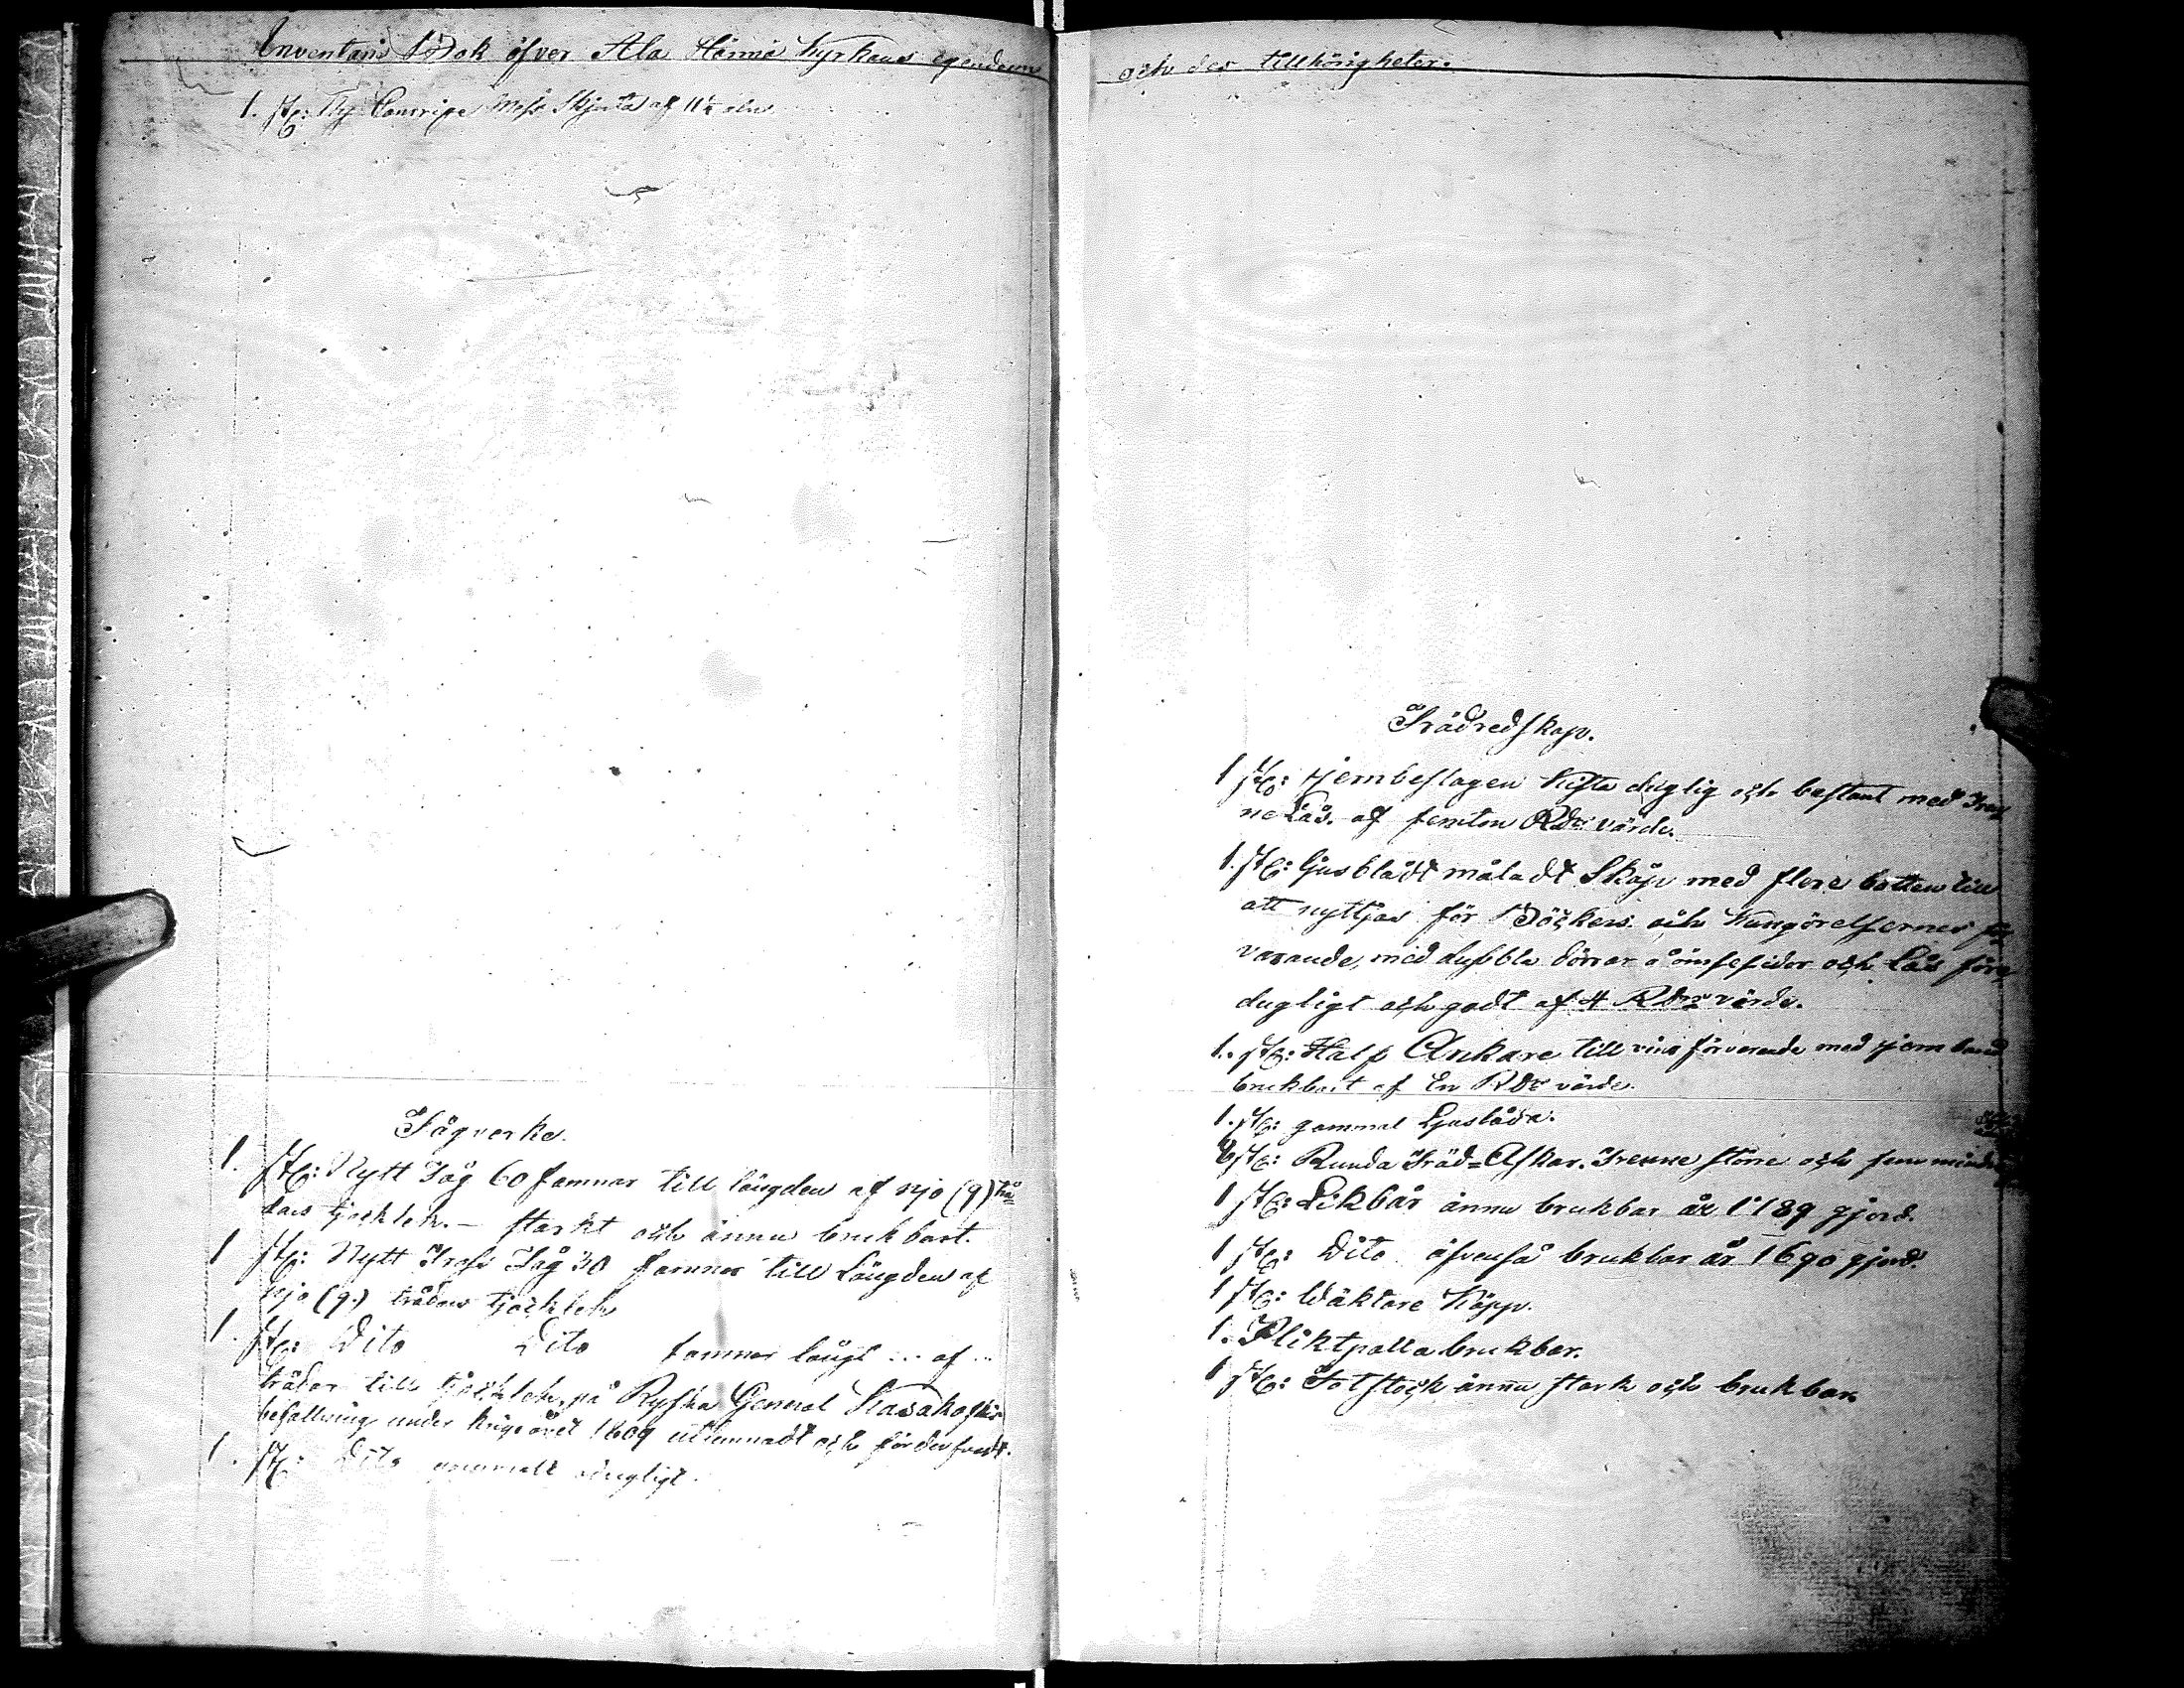 Inventarie Bok öfver Ala Härmä Kyrkans egendom
1. St: Ny Mess Skjorta af 11½ aln.
Tågverke.
1. St: Nytt Tåg 60 famnar till längden af njo (9) trå
dars tjocklek. - starkt och ännu brukbart.
1 St: Nytt Tross Tåg 30 famnar till längden af
njo (9.) trådars tjocklek
1. St: Dito Dito famnar långt ... af ...
trådar till tjocklek, på Ryska General Kasakofskis
befallning under krigsåret 1809 utlemnadt och förderfvadt.
1. St: Dito gammalt odugligt.
och des tillhörigheter.
Trädredskap.
1 St: Jernbeslagen Kista duglig och bestant med Tven
ne Lås. af femton Rdr värde.
1. St: ljusblådt måladt Skåp med flere botten till
att nyttjas för Böckers och Kungörelsernes för
varande, med dubbla dörrar å ömse sidor och Lås före
dugligt och godt af 4 Rdr värde.
1. St: Half Ankare till vins förvarande med jern band
brukbart af En Rdr värde.
1. St: gammal Ljuslåda.
8 St: Runda Träd=Askar. Trenne större och fem mindre
1 St: Likbår ännu brukbar år 1789 gjord.
1 St: Dito äfvenså brukbar år 1690 gjord.
1 St: Wäktare Käpp.
1. Pliktpalla brukbar.
1 St: Fotstock ännu stark och brukbar.